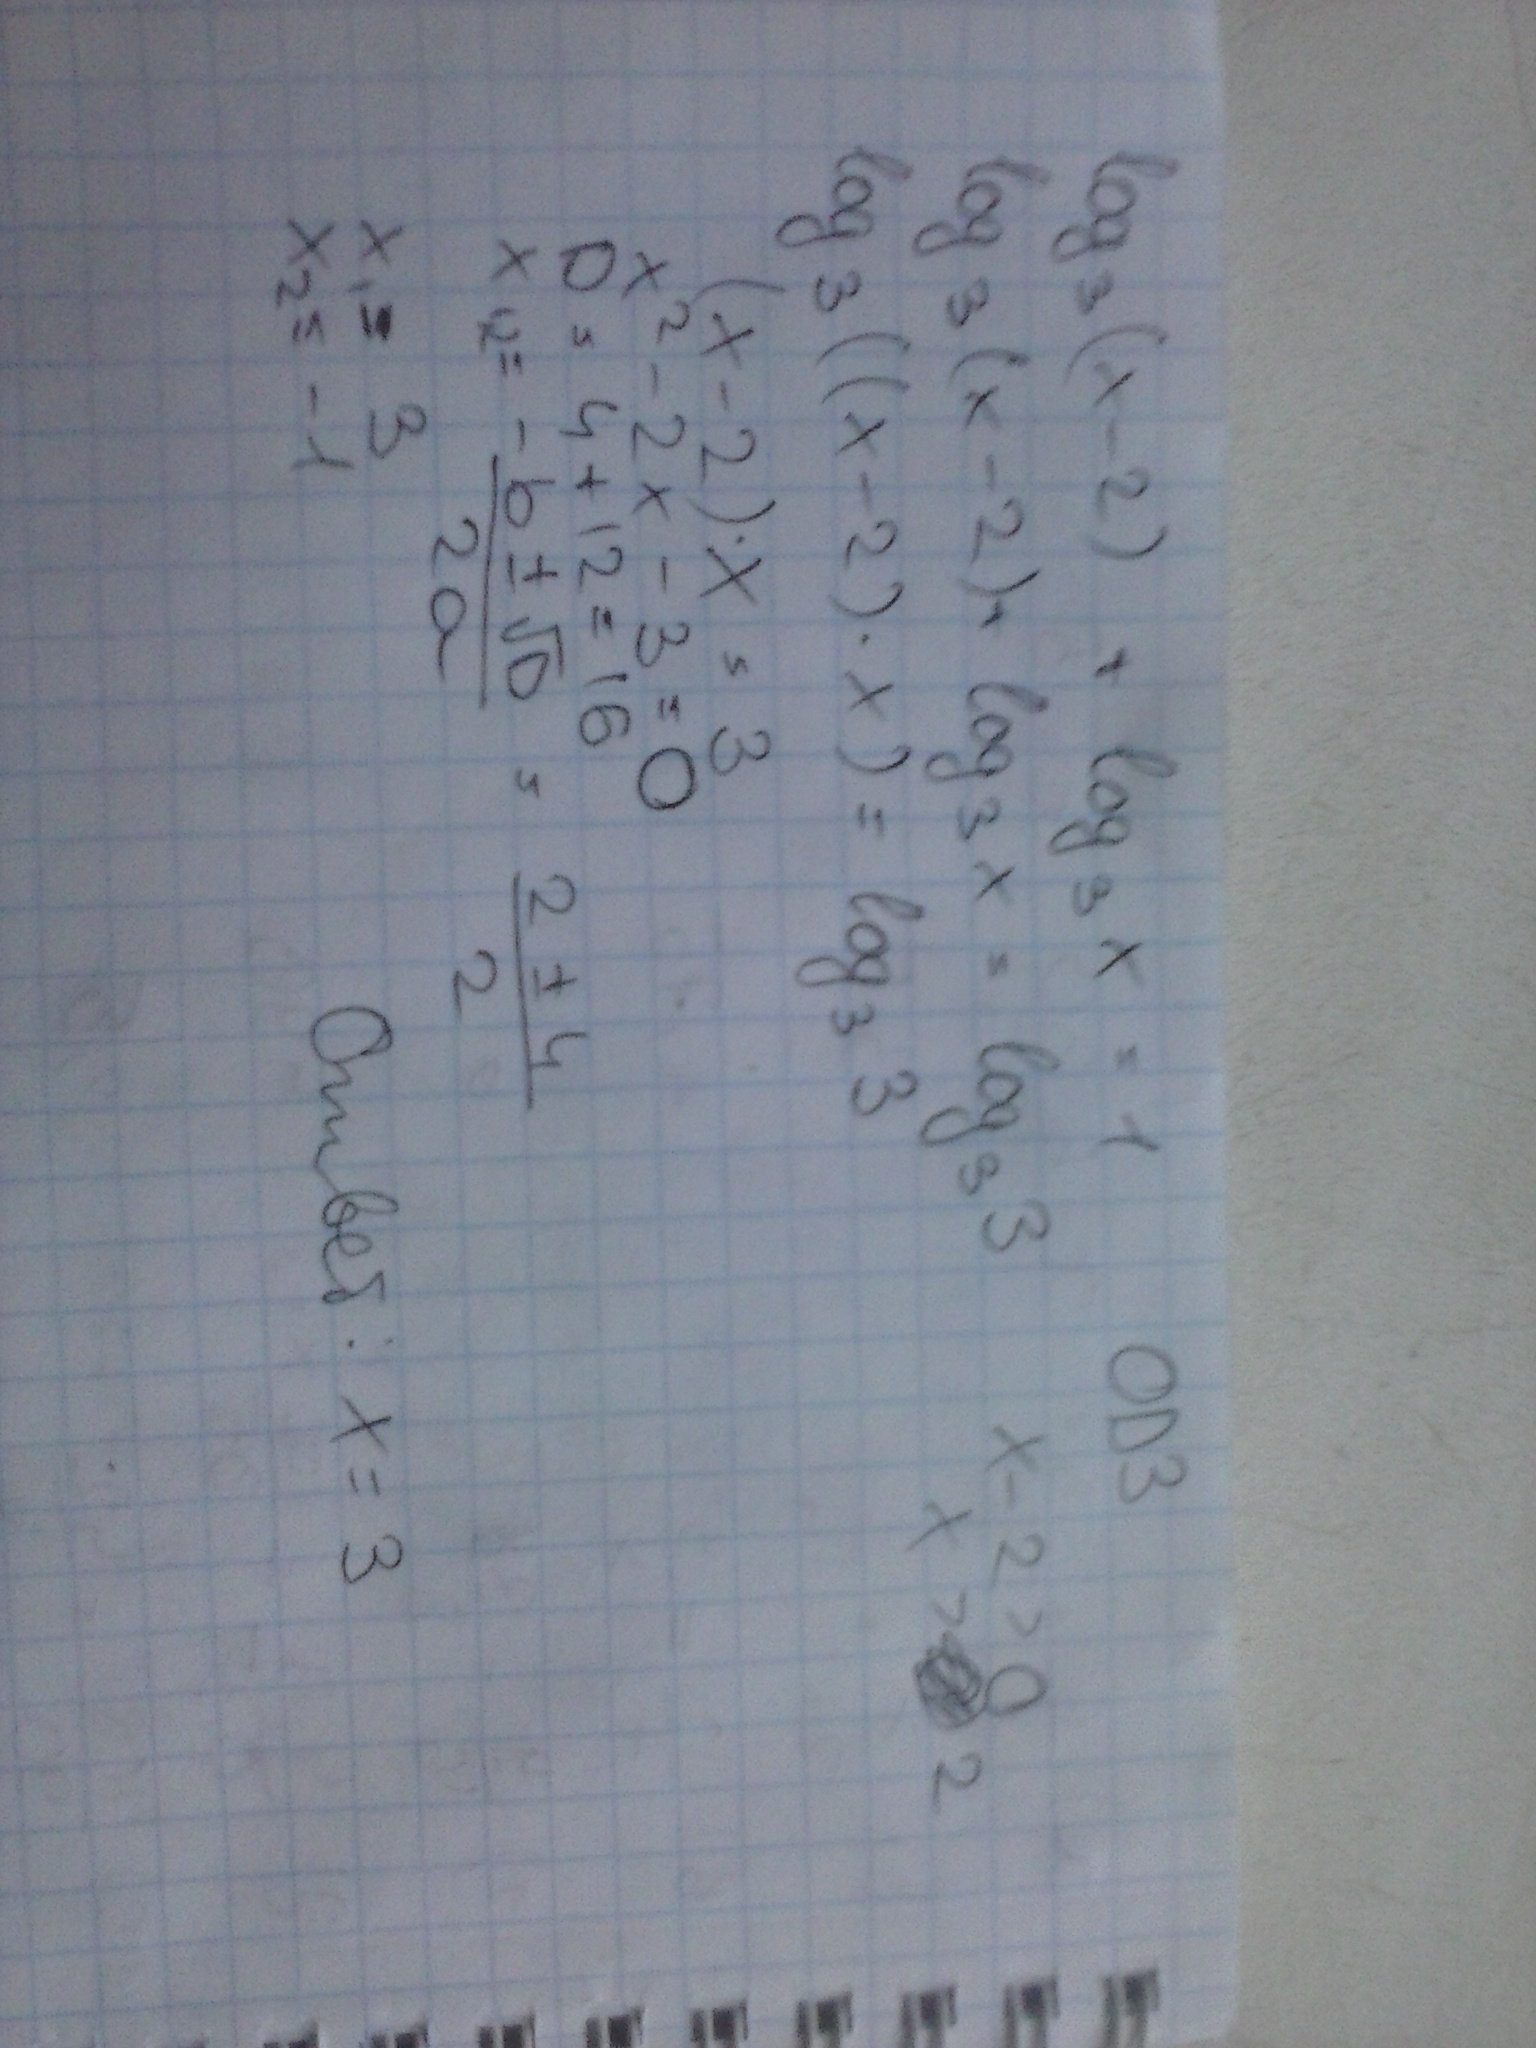 log₃(x-2) + log₃x = 1 ОДЗ
log₃(x-2)+ log₃x = log₃3 x-2>0
log₃((x-2)·x) = log₃3 x> 2
(x-2)·x = 3
x²-2x-3=0
D = 4+12=16
x₁,₂= -b±√D / 2a = 2±4 / 2
x₁= 3
x₂= -1
Ответ: x=3